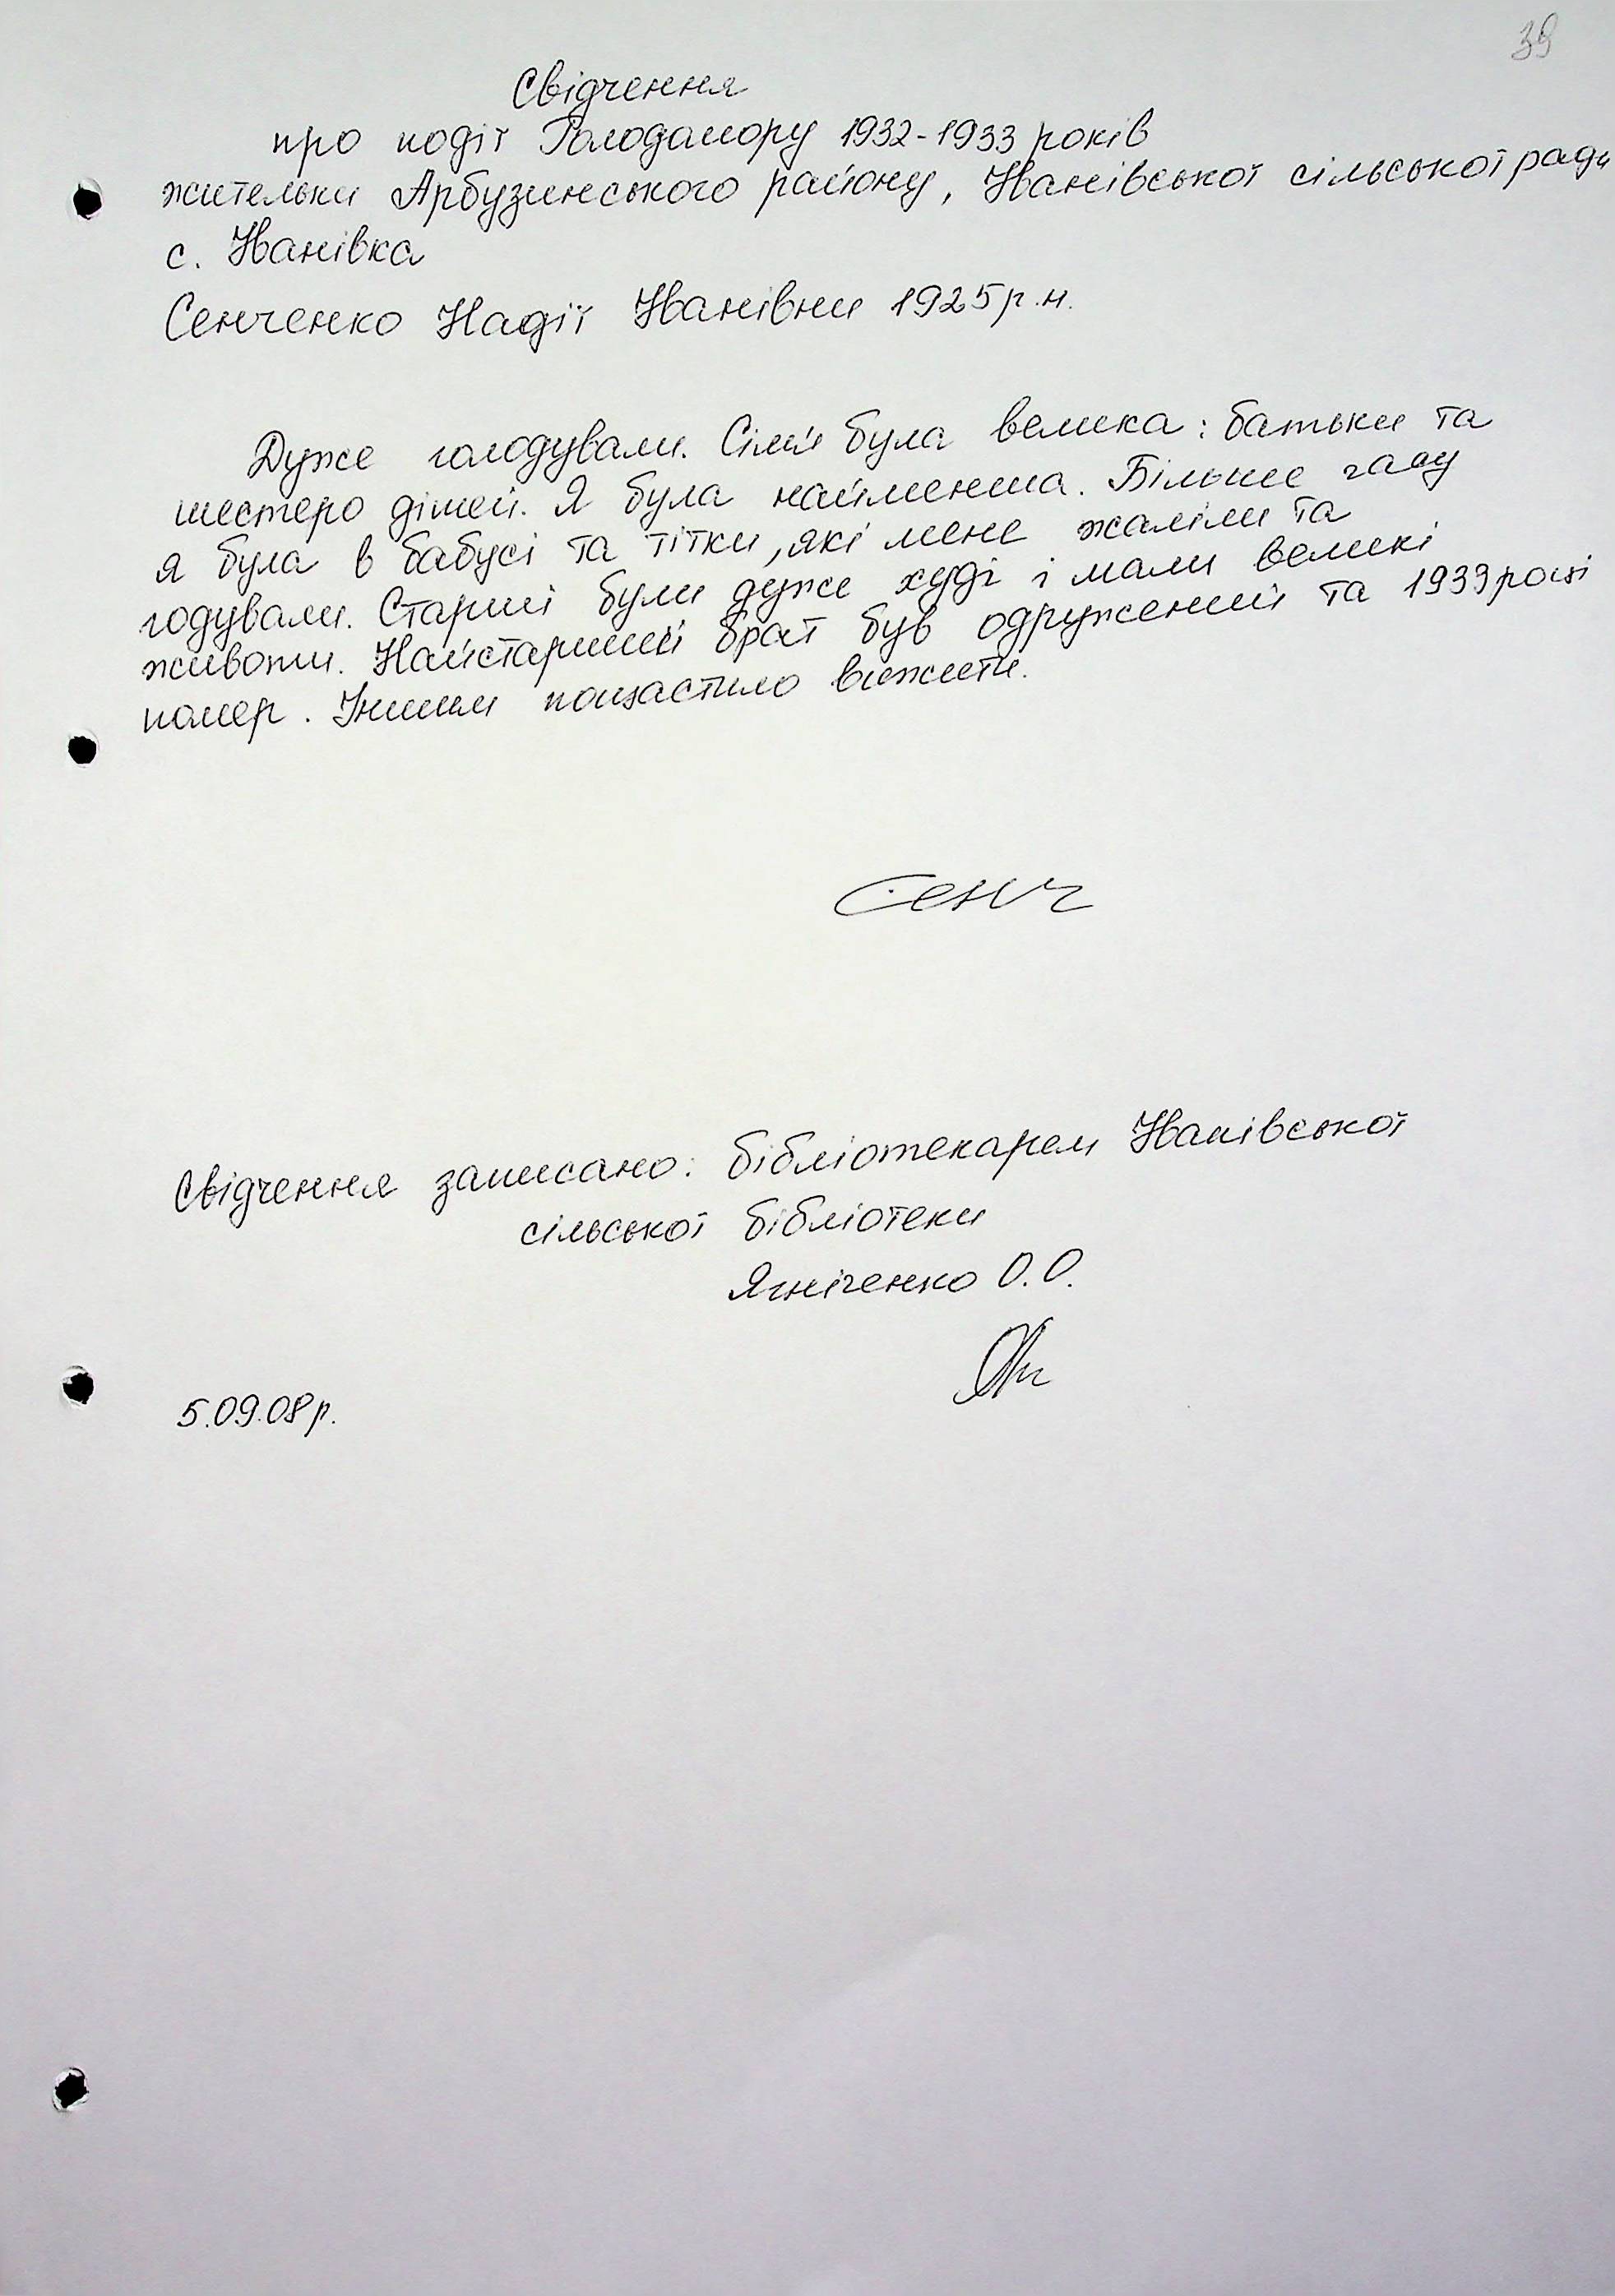 39
Свідчення
про події Голодомору 1932-1933 років
жительки Арбузинського району, Іванівської сільської ради
с. Іванівка
Сенченко Надії Іванівни 1925 р.н.
Дуже голодували. Сім'я була велика: батьки та
шестеро дітей. Я була найменша. Більше часу
я була в бабусі та тітки, які мене жаліли та
годували. Старші були дуже худі і мали великі
животи. Найстарший брат був одружений та 1939 році
помер. Іншим пощастило вижити.
Сенч
Свідчення записано: бібліотекарем Іванівської
сільської бібліотеки
Ягніченко О.О.
5.09.08 р.